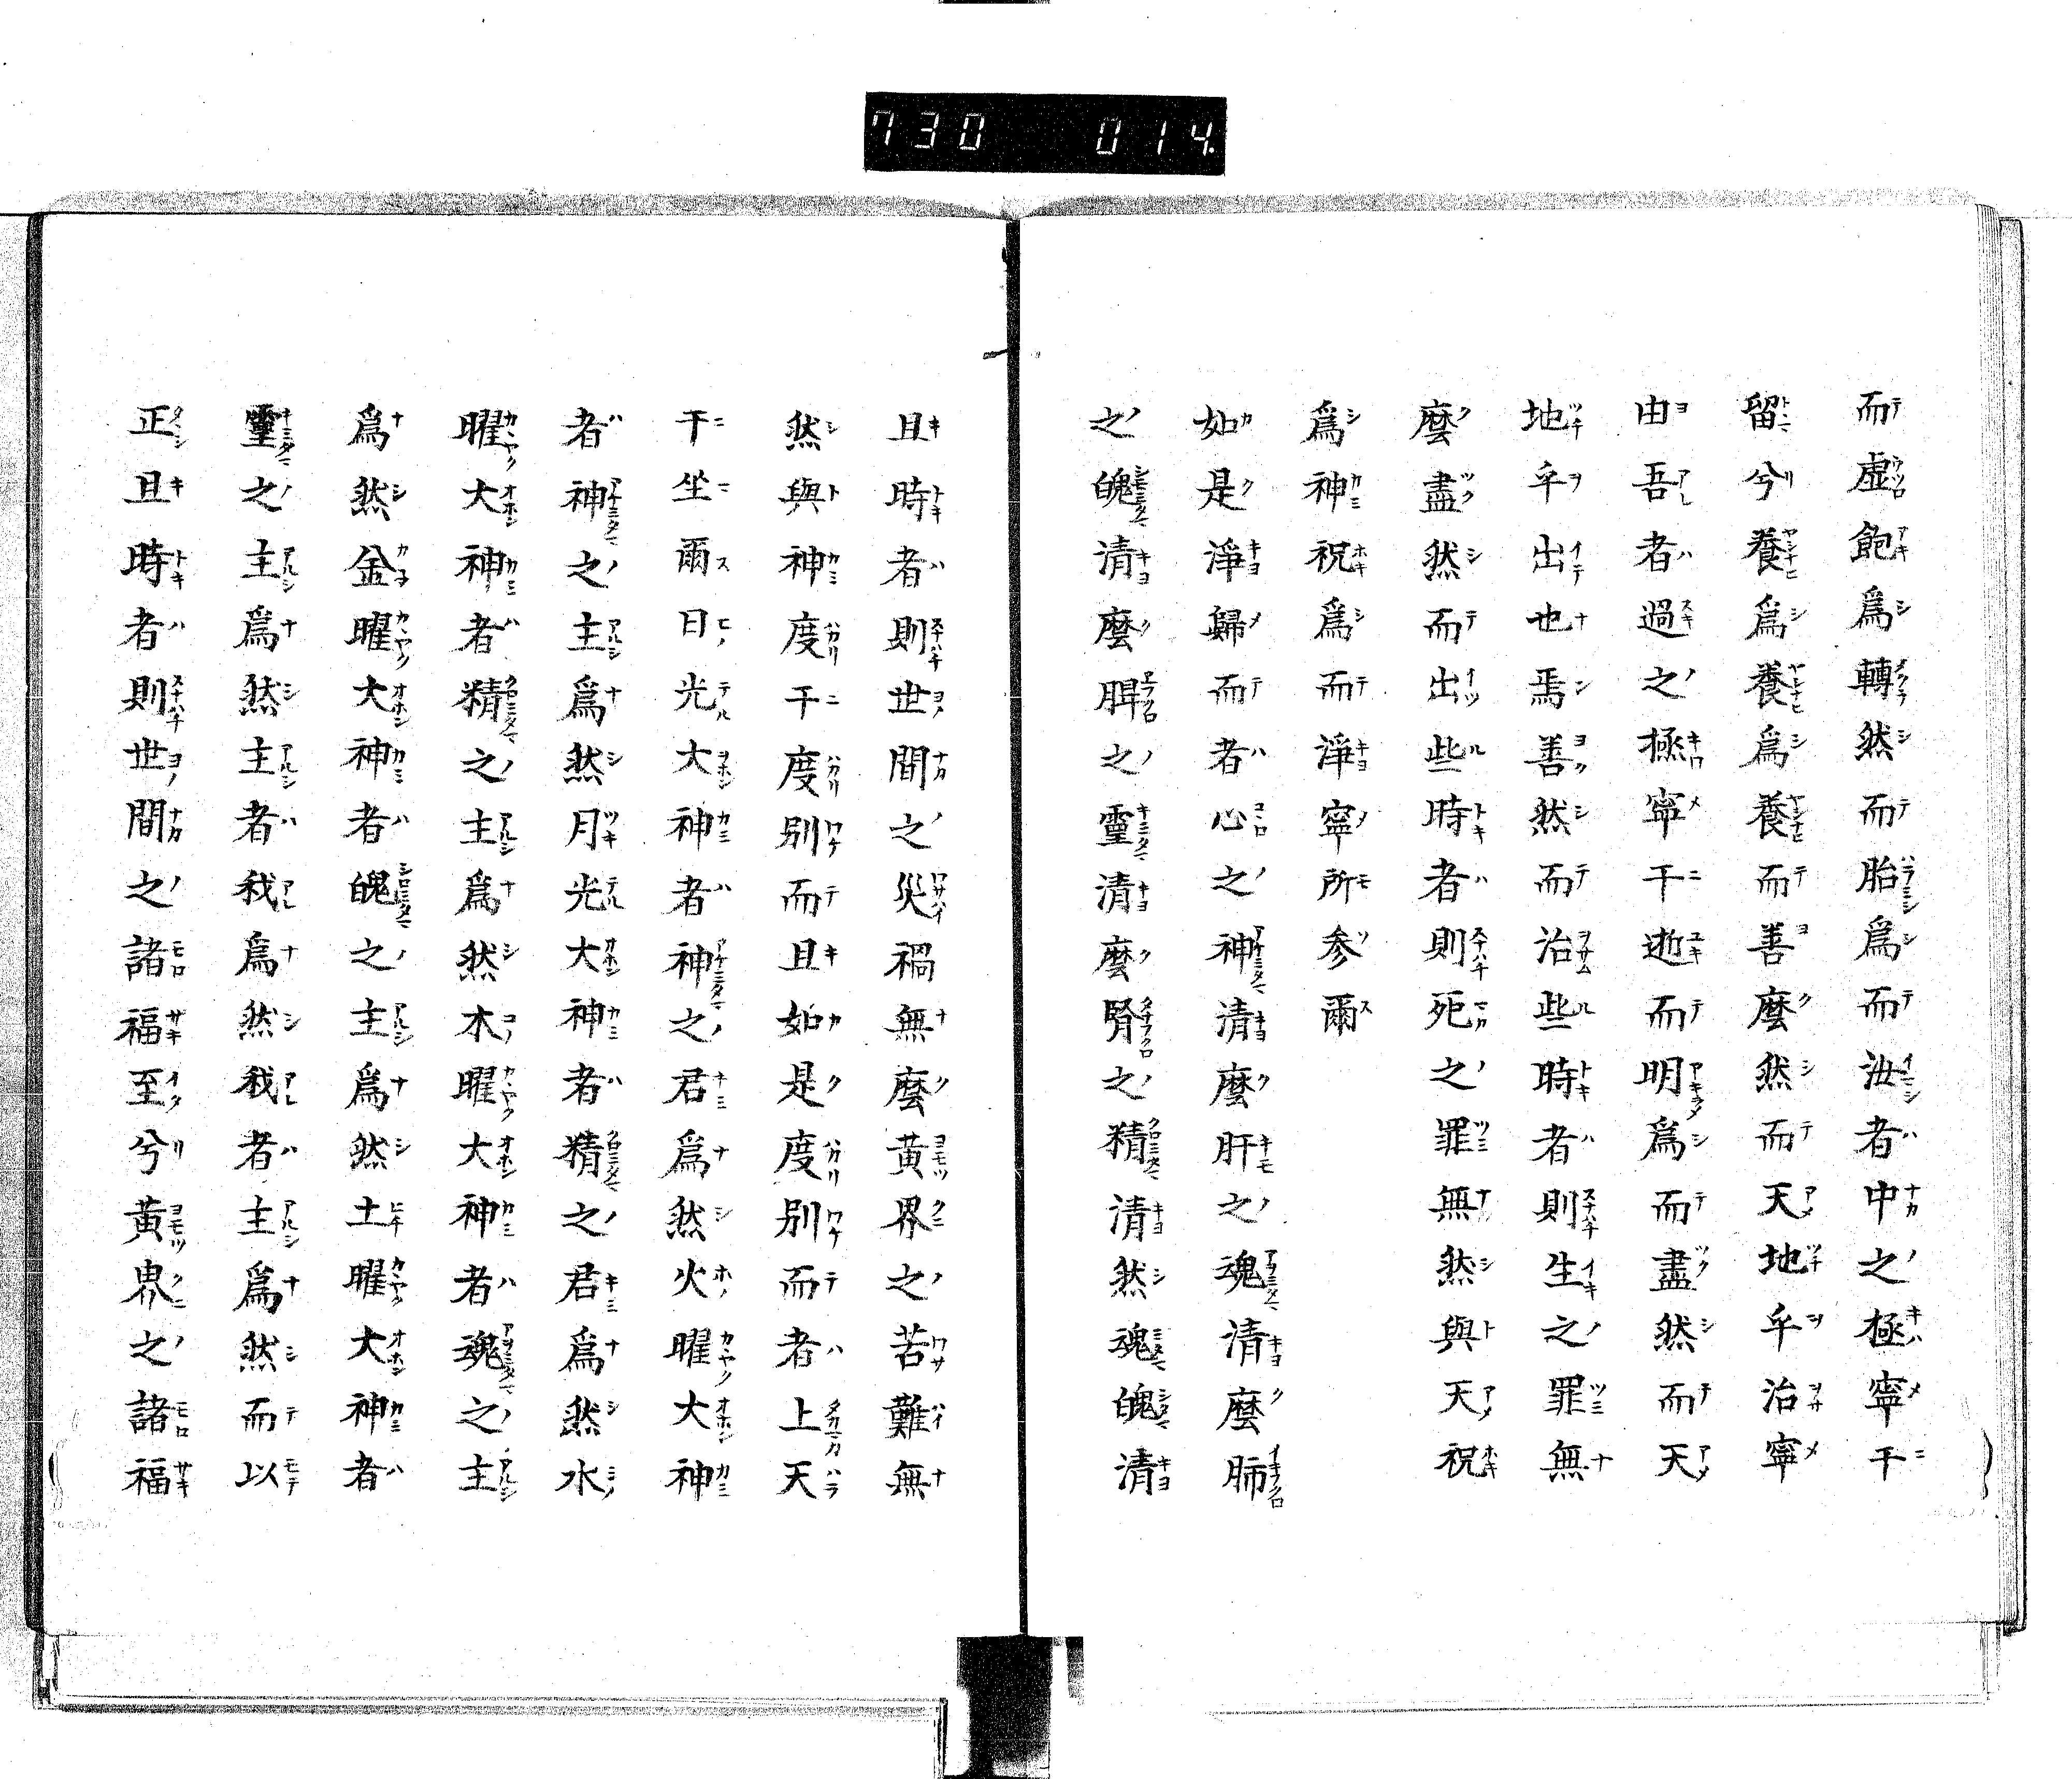 730 014
而虚飽爲轉然而胎爲而泄者中之極寧干
留兮養爲養爲養而善麼然而天地乎治寧
由吾者過之極寧干逝而明爲而盡然而天
地乎出也焉善然而治些時者則生之罪無
麼盡然而出些時者則死之罪無然與天祝
爲神祝爲而淨寧所参爾
如是淨歸而者心之神清麼肝之魂清麼肺
之魄清麼脾之靈清麼腎之精清然魂魄清
且時者則世間之災禍無麼黃界之苦難無
然與神度干度別而且如是度別而者上天
干坐爾日光大神者神之君爲然火曜大神
者神之主爲然月光大神者精之君爲然水
曜大神者精之主爲然木曜大神者魂之主
爲然金曜大神者魄之主爲然土曜大神者
靈之主爲然主者我爲然我者主爲然而以
正且時者則世間之諸福至兮黃界之諸福